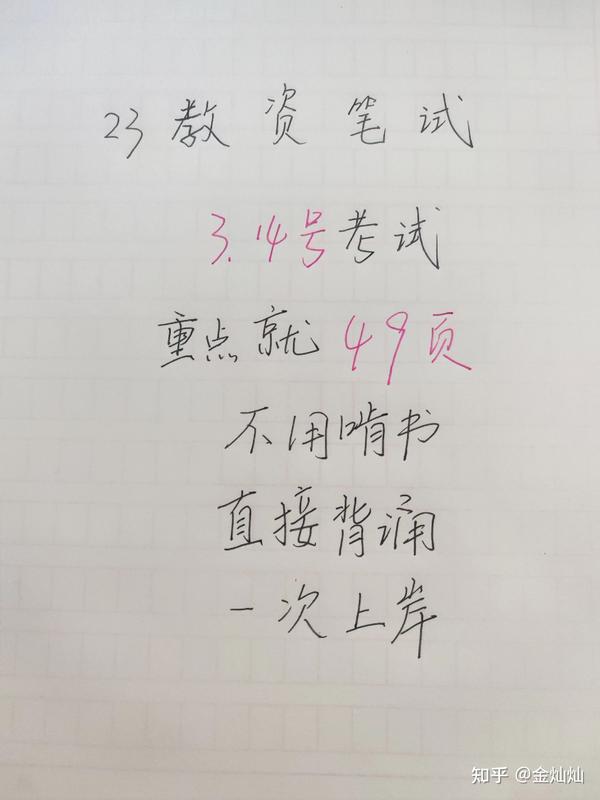 23教资笔试
3.14号考试
重点就49页
不用啃书
直接背诵
一次上岸
知乎 @金灿灿